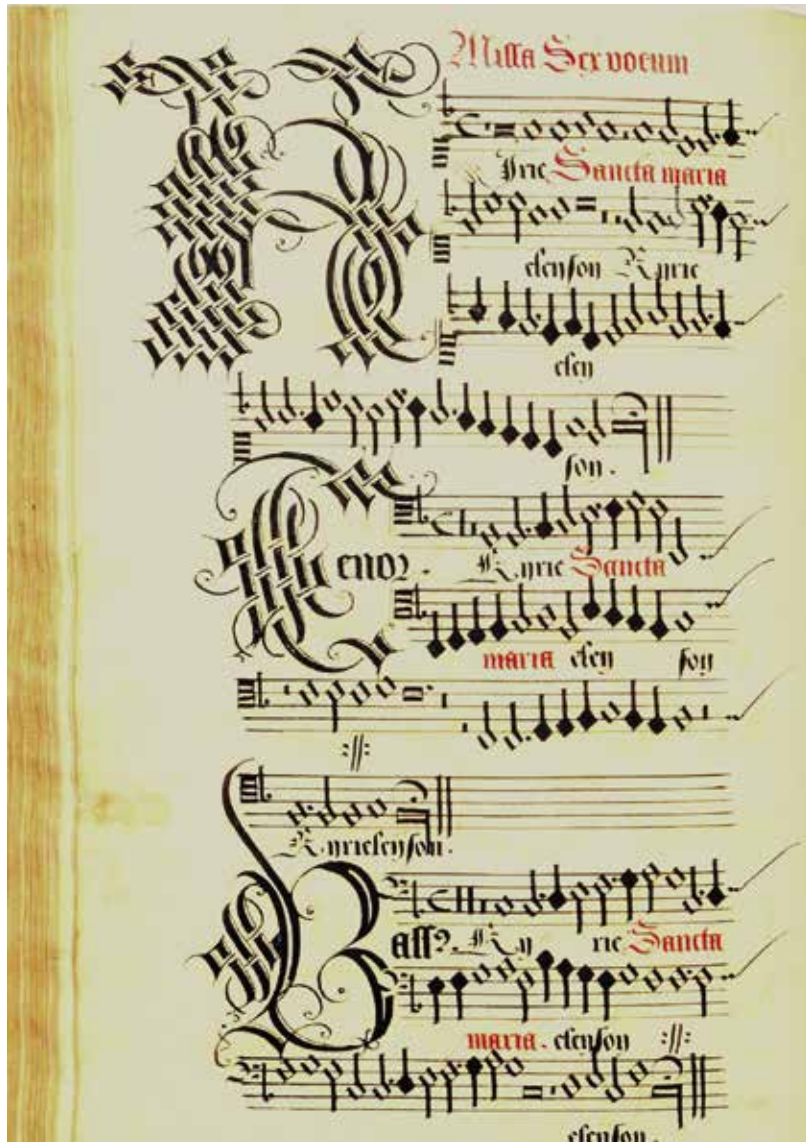 Missa Sex vocum
Kyrie Sancta maria
eleyson Kyrie
eley
son.
Tenor. Kyrie Sancta
maria eley son
:||:
Kyrieleyson.
Bass⁹. Ky rie Sancta
maria. eleyson :||:
eleyson.